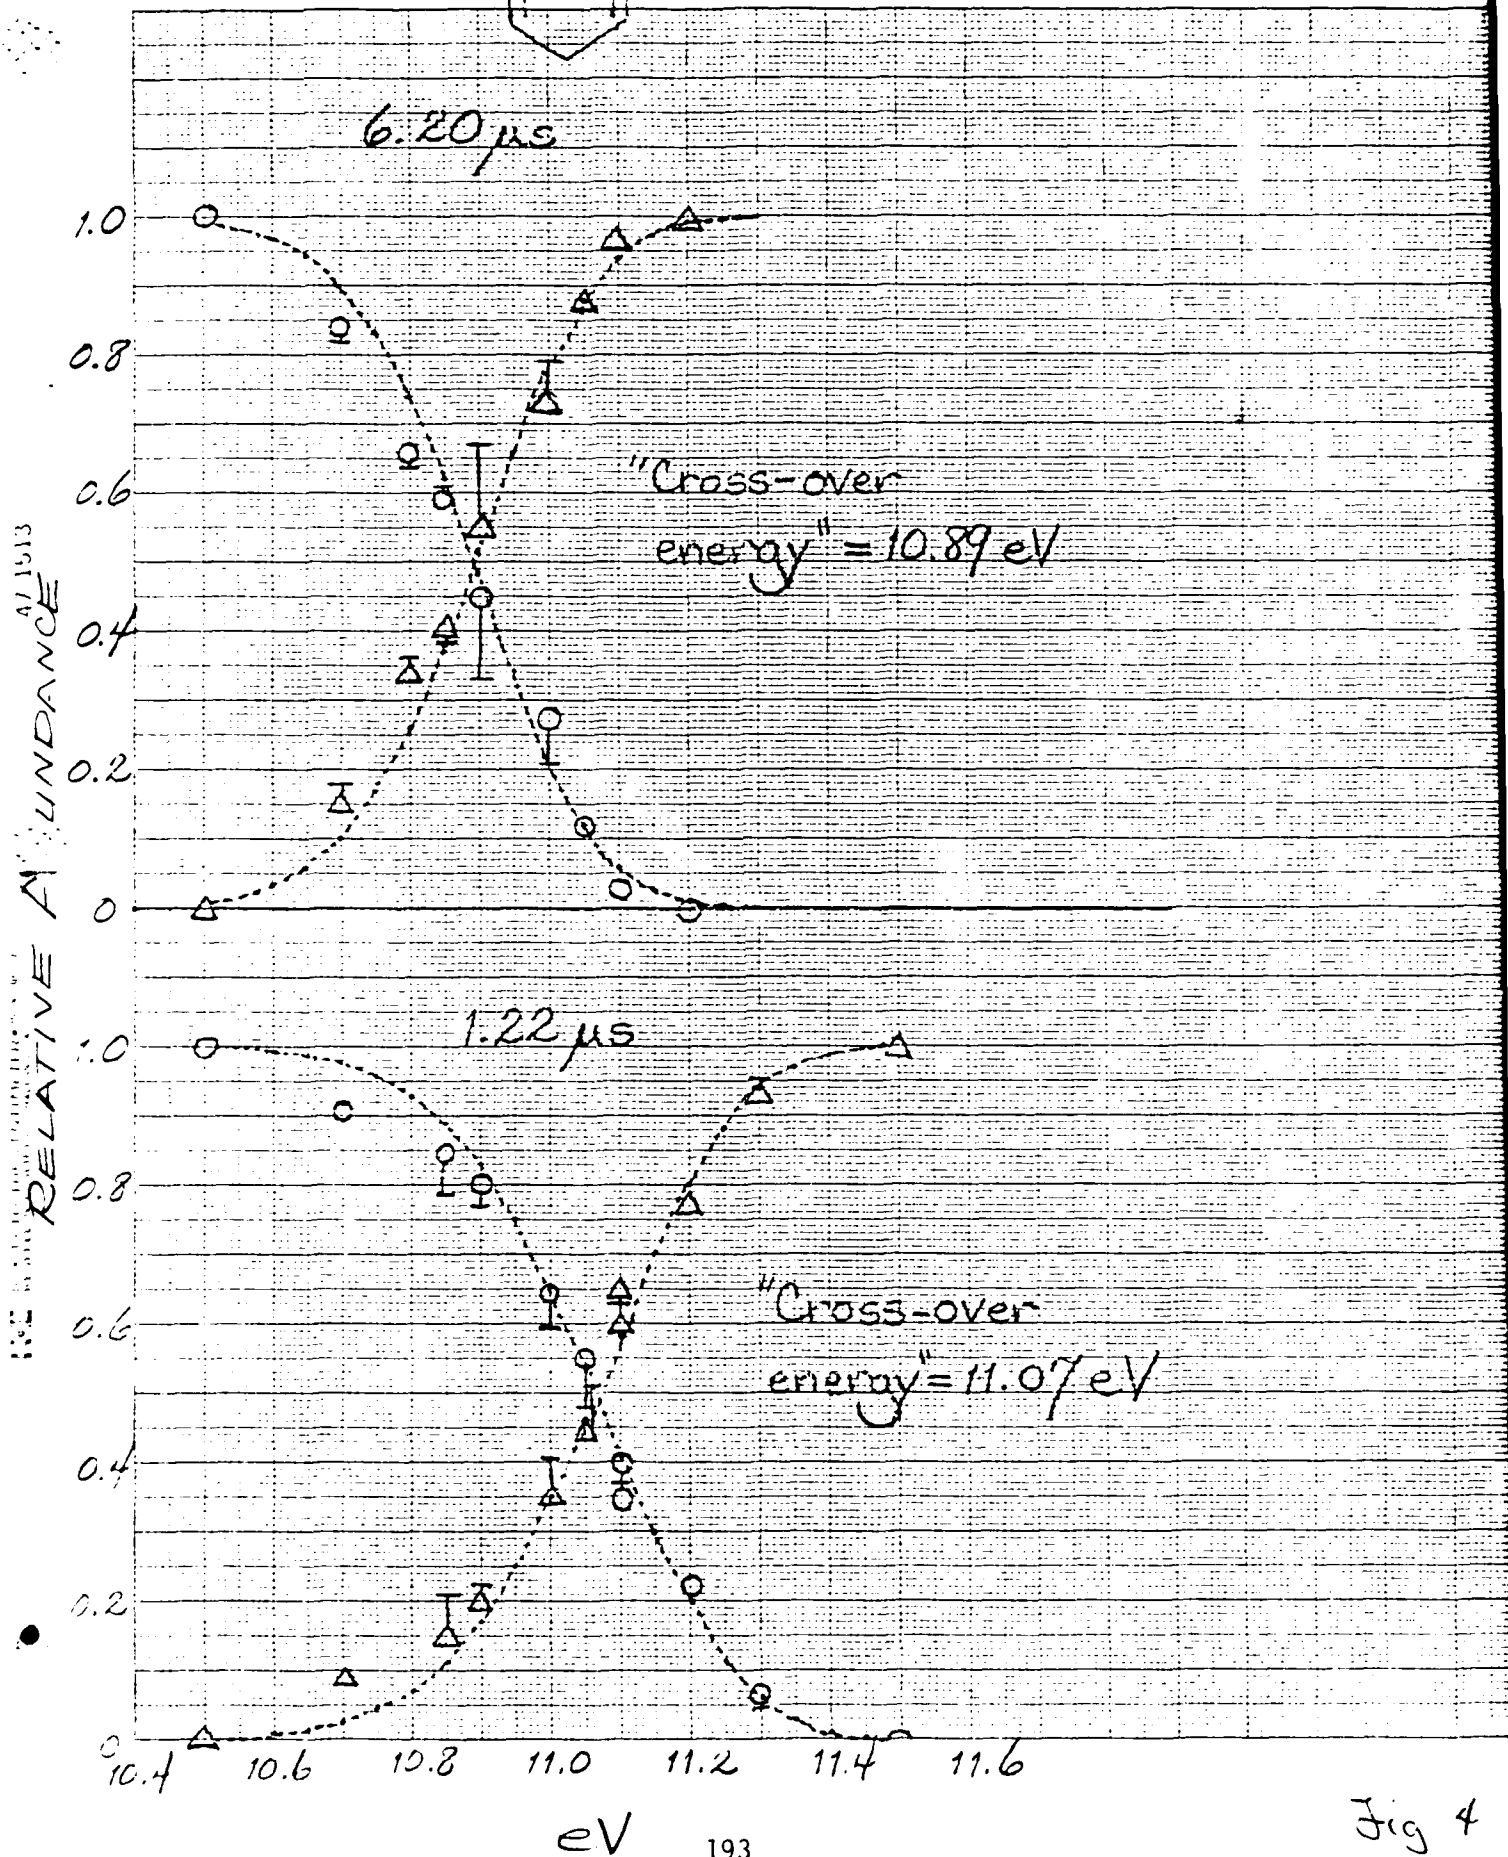 6.20 μs
1.0
0.8
0.6
0.4
0.2
0
"Cross-over
energy" = 10.89 eV
RELATIVE
1.22 μs
1.0
0.8
0.6
0.4
0.2
0
"Cross-over
energy" = 11.07 eV
10.4 10.6 10.8 11.0 11.2 11.4 11.6
eV
193
Fig 4